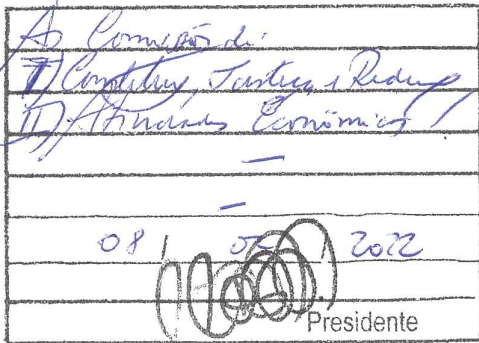 As Comissões de:
I) Constituição, Justiça e Redação
II) Atividades Econômicas
—
—
08 / / 2022
Presidente